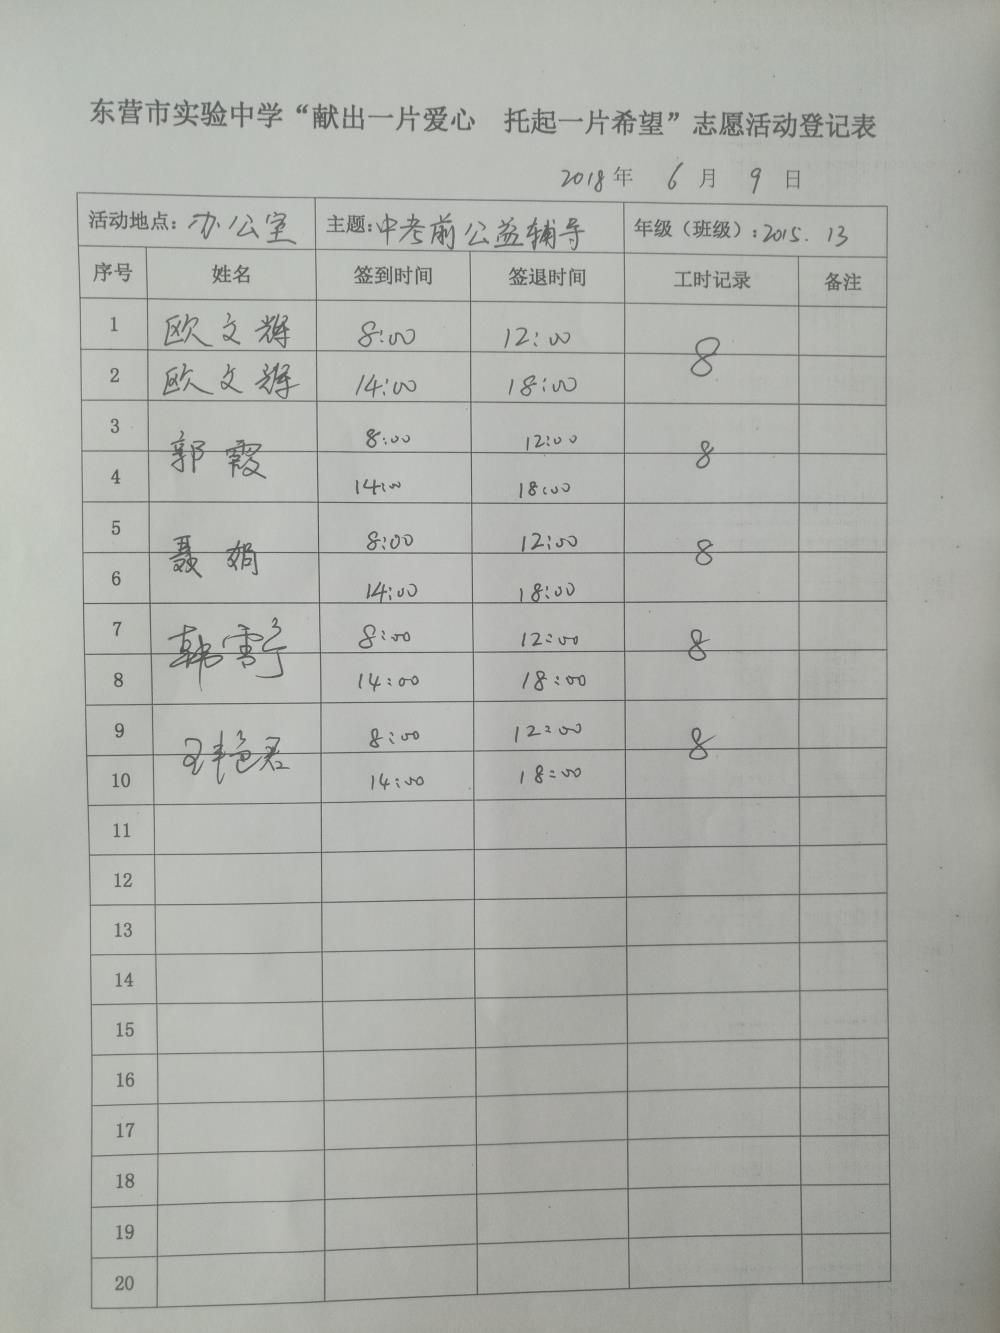 东营市实验中学“献出一片爱心 托起一片希望”志愿活动登记表
2018年 6月 9日
活动地点: 办公室 主题: 中考前公益辅导 年级（班级）: 2015. 13
序号 姓名 签到时间 签退时间 工时记录 备注
1 欧文辉 8:00 12:00 8
2 欧文辉 14:00 18:00
3 郭霞 8:00 12:00 8
4 14:00 18:00
5 聂娟 8:00 12:00 8
6 14:00 18:00
7 韩雪宁 8:00 12:00 8
8 14:00 18:00
9 8:00 12:00 8
10 14:00 18:00
11
12
13
14
15
16
17
18
19
20